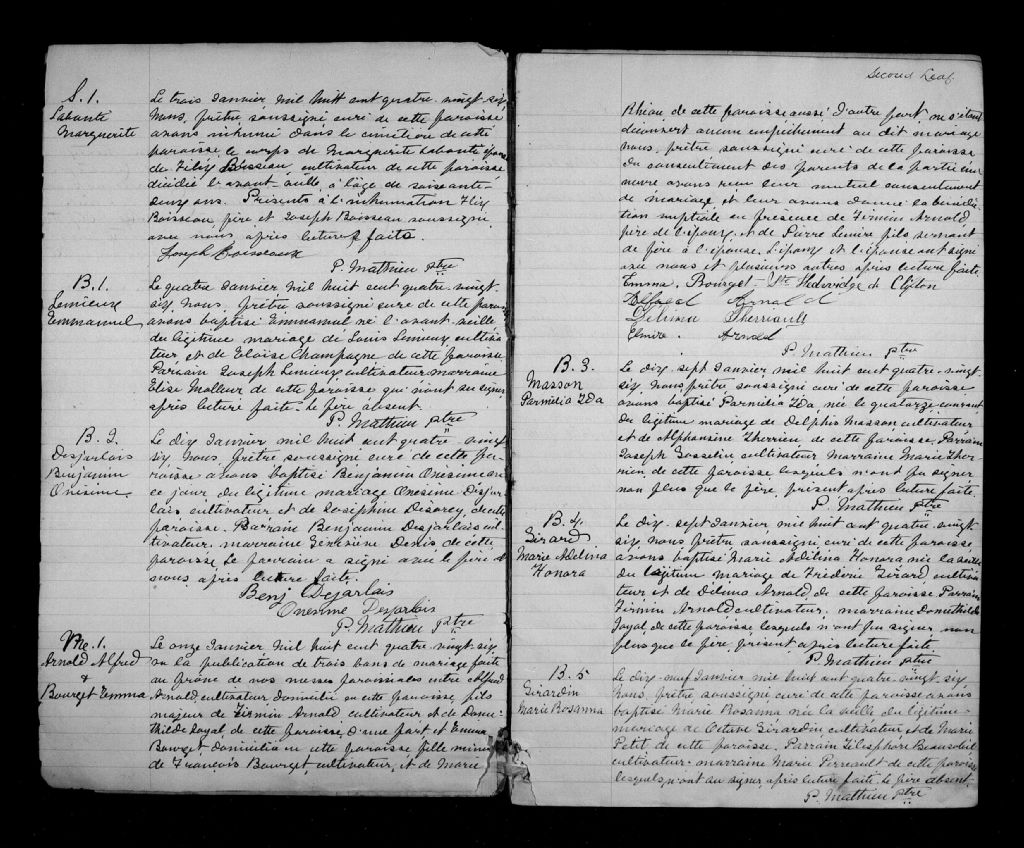 S. 1.
Labonté
Marguerite
Le trois Janvier, mil huit cent quatre-vingt-six
Nous, prêtre soussigné curé de cette paroisse
avons inhumé dans le cimetière de cette
paroisse le corps de Marguerite Labonté épouse
de Félix Boisseau, cultivateur de cette paroisse
décédée l'avant-veille à l'âge de soixante-
deux ans. Présents à l'inhumation Félix
Boisseau père et Joseph Boisseau soussigné
avec nous après lecture faite.
Joseph Boisseaux
P. Mathieu ptre
B. 1.
Lemieux
Emmanuel
Le quatre Janvier mil huit cent quatre-vingt-
six, Nous, prêtre soussigné curé de cette paroisse
avons baptisé Emmanuel né l'avant-veille
du légitime mariage de Louis Lemieux cultiva-
teur et de Eloise Champagne de cette paroisse
Parrain Joseph Lemieux cultivateur, marraine
Elise Molleur de cette paroisse qui n'ont su signer
après lecture faite. Le père absent.
P. Mathieu ptre
B. 2.
Desjarlais
Benjamin
Onésime
Le dix Janvier mil huit cent quatre-vingt
six Nous, prêtre soussigné curé de cette pa-
roisse avons baptisé Benjamin Onésime né
ce jour du légitime mariage Onésime Desjar-
lais cultivateur et de Joséphine de cette
paroisse. Parrain Benjamin Desjarlais cul-
tivateur. marraine Geneviève Denis de cette
paroisse. Le parrain a signé avec le père et
nous après lecture faite.
Benj Dejarlais
Onesime Desjarlais
P. Mathieu ptre
M. 1.
Arnold Alfred
&
Bourget Emma
Le onze Janvier, mil huit cent quatre-vingt-six,
vu la publication de trois bans de mariage faite
au prône de nos messes paroissiales entre Alfred
Arnold, cultivateur, domicilié en cette paroisse, fils
majeur de Firmin Arnold, cultivateur et de Dome-
thilde Royal, de cette paroisse, d'une part et Emma
Bourget, domiciliée en cette paroisse fille mineure
de François Bourget, cultivateur, et de Marie
Second Leaf
Rhéau de cette paroisse aussi d'autre part ne s'étant
découvert aucun empêchement au dit mariage
nous, prêtre soussigné curé de cette paroisse
du consentement des parents de la partie mi-
neure avons reçu leur mutuel consentement
de mariage et leur avons donné la bénédic-
tion nuptiale en présence de Firmin Arnold
père de l'époux et de Pierre Lemire fils servant
de père à l'épouse. L'époux et l'épouse ont signé
avec nous et plusieurs autres après lecture faite.
Emma. Bourget - Ste Hedwidge de Clifton
Alfred Arnald
Délvina Therriault
Elmire. Arnold
P. Mathieu ptre
B. 3.
Masson
Parmélia Ida
Le dix-sept Janvier mil huit cent quatre-vingt-
six, Nous prêtre soussigné curé de cette paroisse
avons baptisé Parmélia Ida, née le quatorze courant
du légitime mariage de Delphis Masson cultivateur
et de Alphonsine Therrien de cette paroisse. Parrain
Joseph Gosselin cultivateur Marraine Marie Ther-
rien, de cette paroisse lesquels n'ont pu signer
non plus que le père, présent après lecture faite.
P. Mathieu ptre
B. 4.
Girard
Marie Adélina
Honora
Le dix-sept Janvier mil huit cent quatre-vingt
six, nous prêtre soussigné curé de cette paroisse
avons baptisé Marie Adélina Honora née la veille
du légitime mariage de Fréderic Girard cultiva-
teur et de Arnold, de cette paroisse Parrain
Firmin Arnold cultivateur. marraine Domethilde
Royal, de cette paroisse lesquels n'ont pu signer non
plus que le père, présent après lecture faite
P. Mathieu ptre
B. 5
Girardin
Marie Rosanna
Le dix-neuf Janvier mil huit cent quatre-vingt-six
Nous, prêtre soussigné curé de cette paroisse avons
baptisé Marie Rosanna née la veille du légitime-
mariage de Octave Girardin, cultivateur et de Marie
Petit de cette paroisse. Parrain Télesphore Beausoleil
cultivateur. marraine Marie Perreault de cette paroisse
lesquels n'ont su signer, après lecture faite. Le père absent.
P. Mathieu Ptre